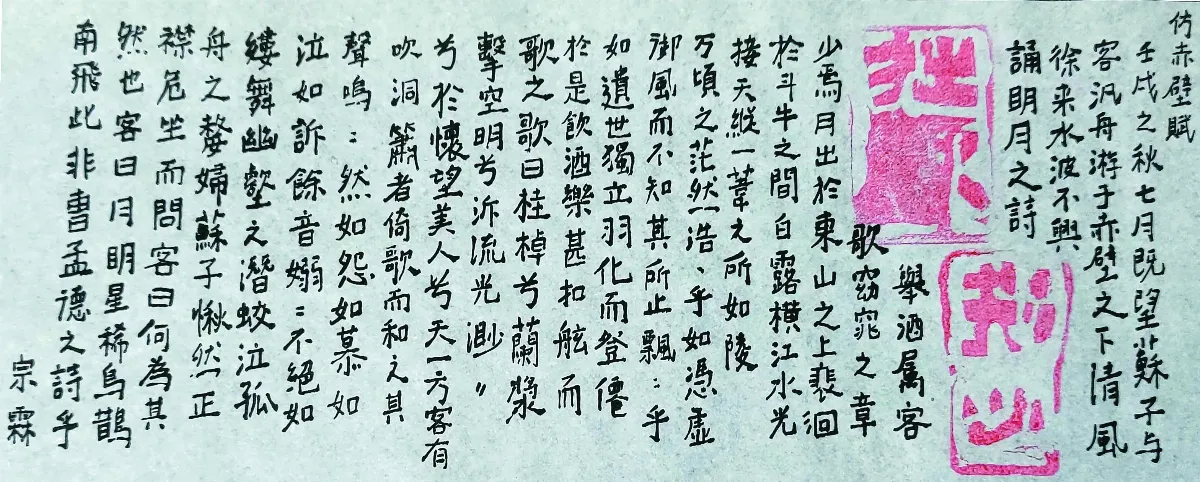 仿赤壁賦
壬戌之秋七月既望蘇子与
客汎舟游于赤壁之下清風
徐来水波不興
誦明月之詩
舉酒属客
歌窈窕之章
少焉月出於東山之上裴回
於斗牛之間白露横江水光
接天縱一葦之所如陵
万頃之茫然浩、乎如憑虚
御風而不知其所止飄：乎
如遺世獨立羽化而登僊
於是飲酒樂甚扣舷而
歌之歌曰桂棹兮蘭漿
擊空明兮泝流光渺〃
兮於懷望美人兮天一方客有
吹洞簫者倚歌而和之其
聲鳴：然如怨如慕如
泣如訴餘音嫋：不絕如
縷舞幽壑之潛蛟泣孤
舟之嫠婦蘇子愀然正
襟危坐而問客曰何為其
然也客曰月明星稀烏鵲
南飛此非曹孟德之詩乎
宗霖